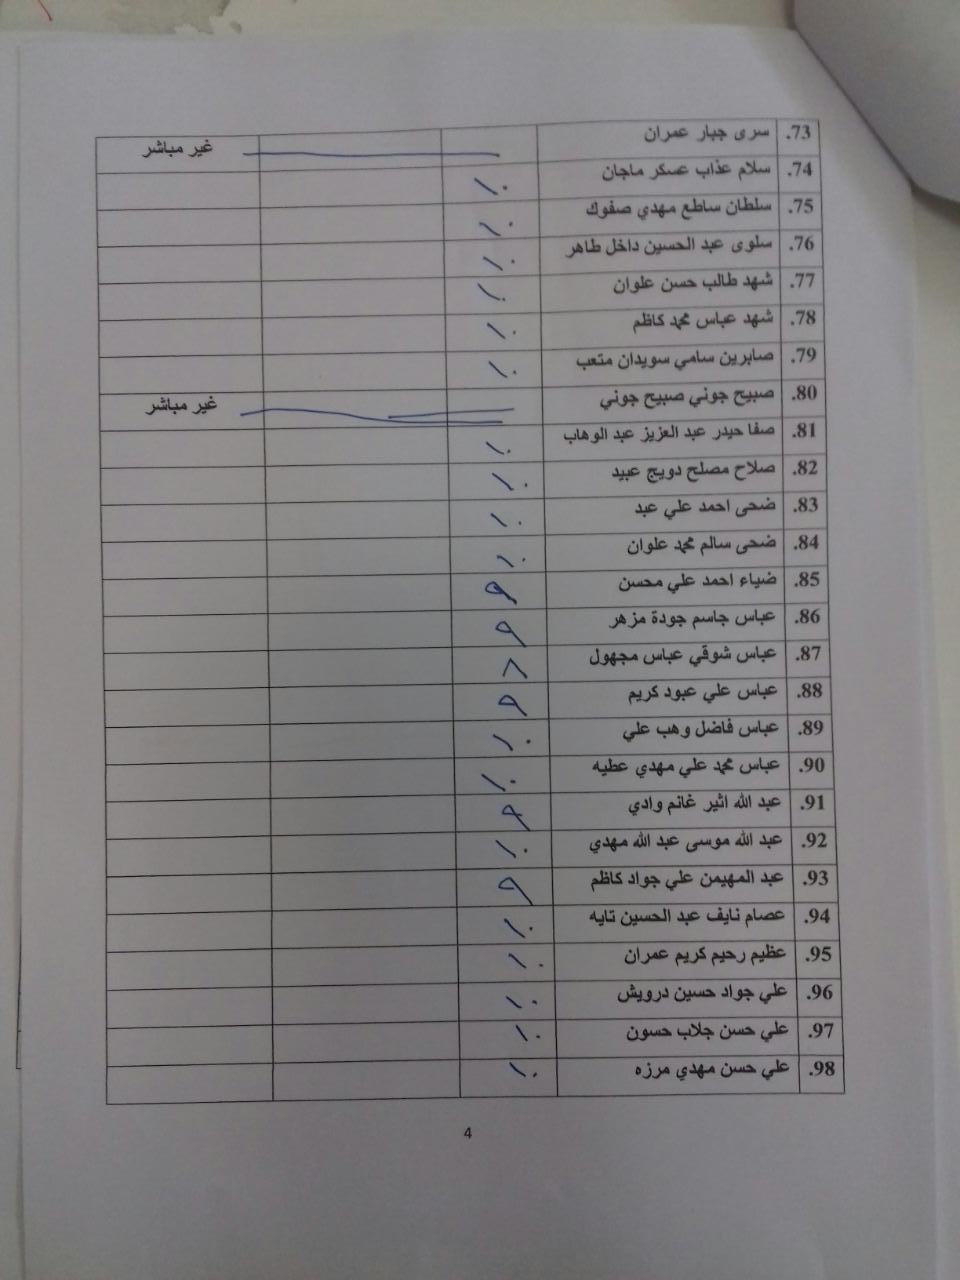 73. سرى جبار عمران غير مباشر
74. سلام عذاب عسكر ماجان ١٠
75. سلطان ساطع مهدي صفوك ١٠
76. سلوى عبد الحسين داخل طاهر ١٠
77. شهد طالب حسن علوان ١٠
78. شهد عباس محمد كاظم ١٠
79. صابرين سامي سويدان متعب ١٠
80. صبيح جوني صبيح جوني غير مباشر
81. صفا حيدر عبد العزيز عبد الوهاب ١٠
82. صلاح مصلح دويج عبيد ١٠
83. ضحى احمد علي عبد ١٠
84. ضحى سالم محمد علوان ١٠
85. ضياء احمد علي محسن ٩
86. عباس جاسم جودة مزهر ٩
87. عباس شوقي عباس مجهول ٨
88. عباس علي عبود كريم ٩
89. عباس فاضل وهب علي ١٠
90. عباس محمد علي مهدي عطيه ١٠
91. عبد الله اثير غانم وادي ٩
92. عبد الله موسى عبد الله مهدي ١٠
93. عبد المهيمن علي جواد كاظم ٩
94. عصام نايف عبد الحسين تايه ١٠
95. عظيم رحيم كريم عمران ١٠
96. علي جواد حسين درويش ١٠
97. علي حسن جلاب حسون ١٠
98. علي حسن مهدي مرزه ١٠
4